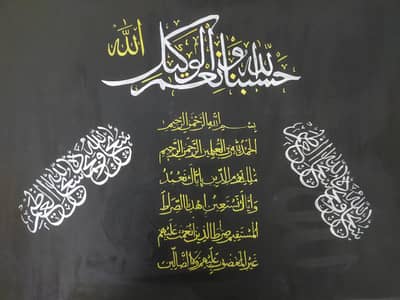 الله
حسبنا الله ونعم الوكيل
بسم الله الرحمن الرحيم
الحمد لله رب العلمين الرحمن الرحيم
ملك يوم الدين إياك نعبد
وإياك نستعين اهدنا الصراط
المستقيم صراط الذين أنعمت عليهم
غير المغضوب عليهم ولا الضالين
سبحان الله وبحمده سبحان الله العظيم